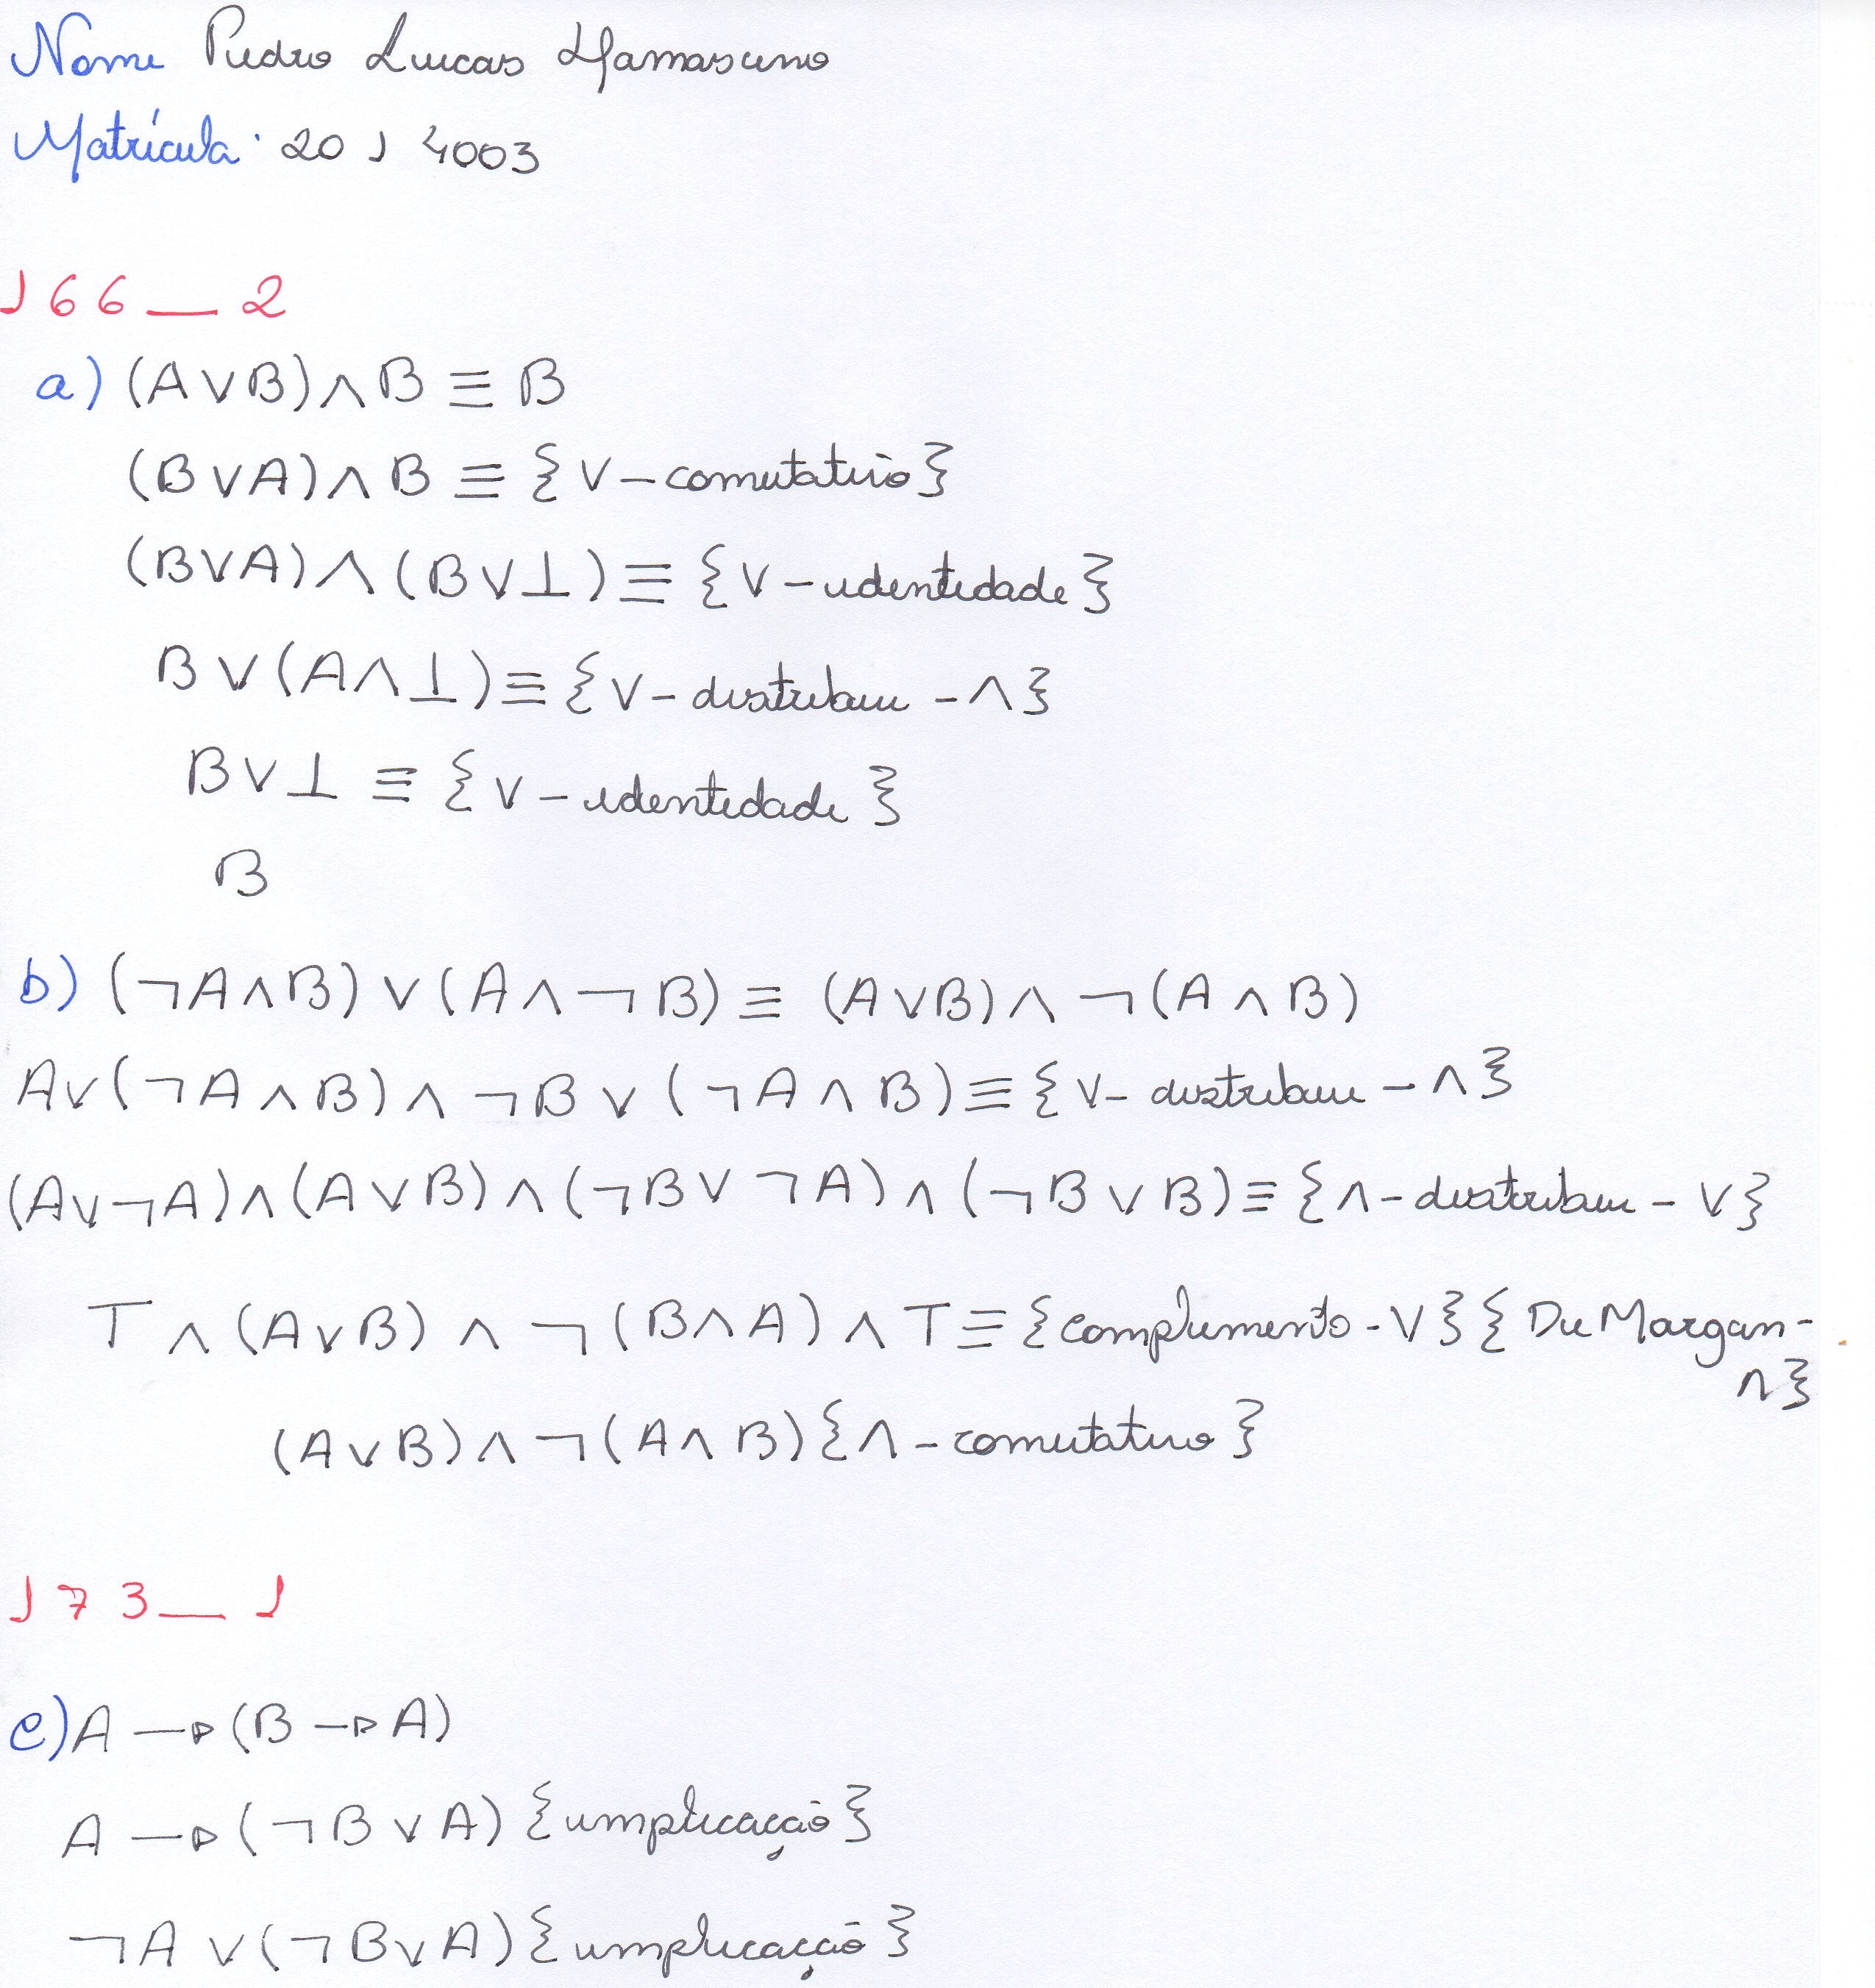 Nome Pedro Lucas Damasceno
Matrícula: 20 1 4003
166_2
a) (A∨B)∧B ≡ B
(B∨A)∧B ≡ {∨-comutativo}
(B∨A)∧(B∨⊥) ≡ {∨-identidade}
B∨(A∧⊥) ≡ {∨-distribui-∧}
B∨⊥ ≡ {∨-identidade}
B
b) (¬A∧B)∨(A∧¬B) ≡ (A∨B)∧¬(A∧B)
A∨(¬A∧B)∧¬B∨(¬A∧B) ≡ {∨-distribui-∧}
(A∨¬A)∧(A∨B)∧(¬B∨¬A)∧(¬B∨B) ≡ {∧-distribui-∨}
T∧(A∨B)∧¬(B∧A)∧T ≡ {complemento-∨}{De Morgan-
∧}
(A∨B)∧¬(A∧B) {∧-comutativo}
173_1
e) A → (B → A)
A → (¬B∨A) {implicação}
¬A∨(¬B∨A) {implicação}